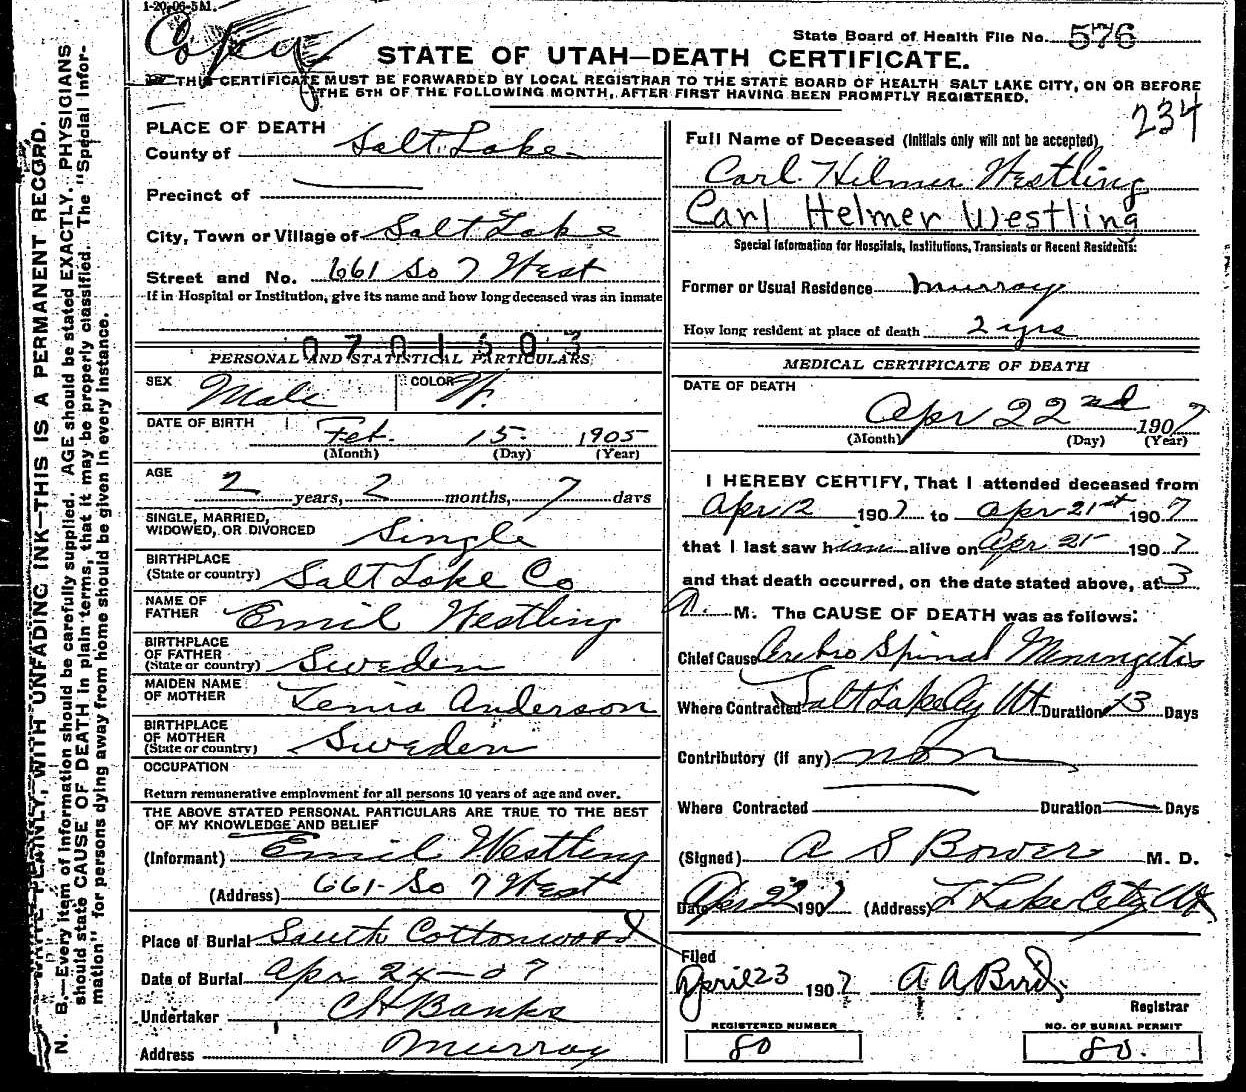 1-20-06-5M.
Copy
State Board of Health File No. 576
STATE OF UTAH—DEATH CERTIFICATE.
THIS CERTIFICATE MUST BE FORWARDED BY LOCAL REGISTRAR TO THE STATE BOARD OF HEALTH SALT LAKE CITY, ON OR BEFORE
THE 5TH OF THE FOLLOWING MONTH, AFTER FIRST HAVING BEEN PROMPTLY REGISTERED.
234
WRITE PLAINLY, WITH UNFADING INK—THIS IS A PERMANENT RECORD.
N. B.—Every item of information should be carefully supplied. AGE should be stated EXACTLY. PHYSICIANS
should state CAUSE OF DEATH in plain terms, that it may be properly classified. The "Special Infor-
mation" for persons dying away from home should be given in every instance.
PLACE OF DEATH
County of Salt Lake
Precinct of
City, Town or Village of Salt Lake
Street and No. 661 So 7 West
If in Hospital or Institution, give its name and how long deceased was an inmate
0701503
PERSONAL AND STATISTICAL PARTICULARS.
SEX Male COLOR W.
DATE OF BIRTH Feb. 15. 1905
(Month) (Day) (Year)
AGE 2 years, 2 months, 7 days
SINGLE, MARRIED,
WIDOWED, OR DIVORCED Single
BIRTHPLACE
(State or country) Salt Lake Co
NAME OF
FATHER Emil Westling
BIRTHPLACE
OF FATHER
(State or country) Sweden
MAIDEN NAME
OF MOTHER Anderson
BIRTHPLACE
OF MOTHER
(State or country) Sweden
OCCUPATION
Return remunerative employment for all persons 10 years of age and over.
THE ABOVE STATED PERSONAL PARTICULARS ARE TRUE TO THE BEST
OF MY KNOWLEDGE AND BELIEF
(Informant) Emil Westling
(Address) 661 So 7 West
Place of Burial South Cottonwood
Date of Burial Apr 24-07
Undertaker CH Banks
Address Murray
Full Name of Deceased (Initials only will not be accepted)
Carl Hilmer Westling
Carl Helmer Westling
Special Information for Hospitals, Institutions, Transients or Recent Residents:
Former or Usual Residence Murray
How long resident at place of death 2 yrs
MEDICAL CERTIFICATE OF DEATH
DATE OF DEATH
Apr 22nd 1907
(Month) (Day) (Year)
I HEREBY CERTIFY, That I attended deceased from
Apr 12 1907 to Apr 21st 1907
that I last saw him alive on Apr 21 1907
and that death occurred, on the date stated above, at 3
A. M. The CAUSE OF DEATH was as follows:
Chief Cause Cerebro Spinal Meningetis
Where Contracted Salt Lake Cy Ut Duration 13 Days
Contributory (if any) non
Where Contracted Duration Days
(Signed) A S Bower M. D.
Date Apr 22 1907 (Address) Lake City Ut
Filed
April 23 1907 A A Bird,
Registrar
REGISTERED NUMBER
80
NO. OF BURIAL PERMIT
80.